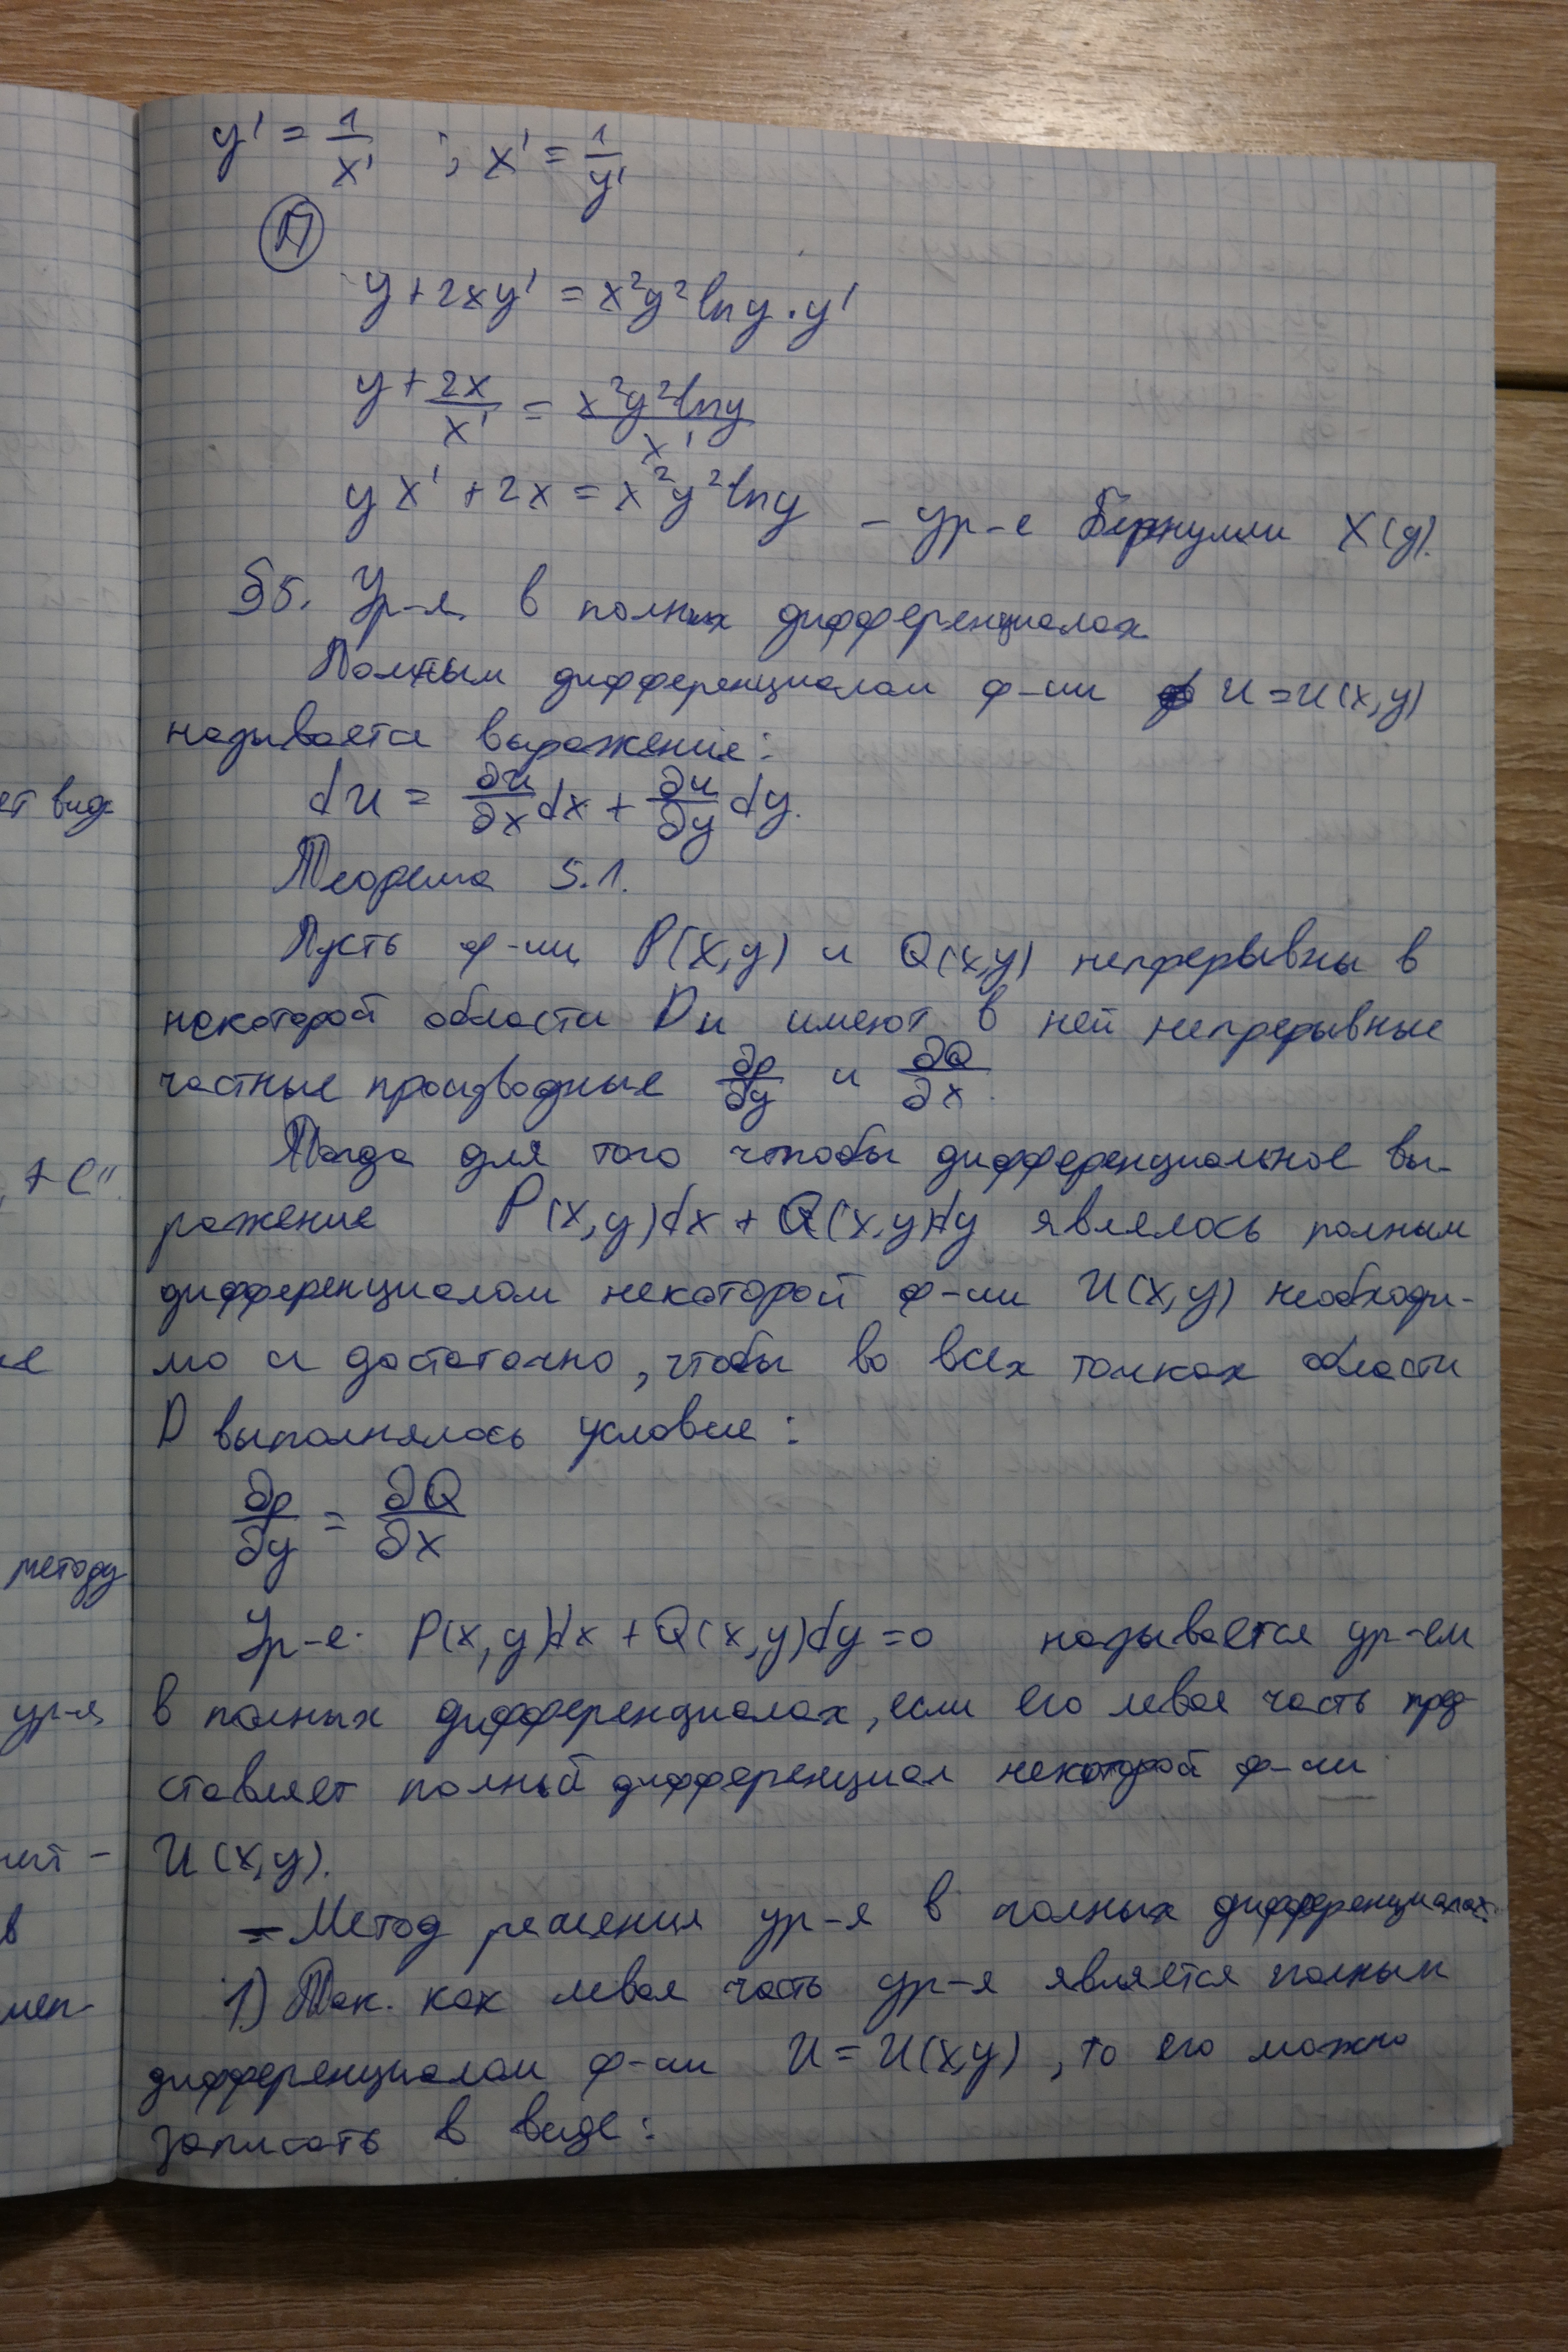 y' = 1/x' ; x' = 1/y'
П
y + 2xy' = x²y² ln y · y'
y + 2x/x' = x²y² ln y / x'
yx' + 2x = x²y² ln y – ур-е Бернулли X(y).
§5. Ур-я в полных дифференциалах
Полным дифференциалом ф-ии u = u(x,y)
называется выражение:
du = ∂u/∂x dx + ∂u/∂y dy.
Теорема 5.1.
Пусть ф-ии P(x,y) и Q(x,y) непрерывны в
некоторой области D и имеют в ней непрерывные
частные производные ∂P/∂y и ∂Q/∂x.
Тогда для того чтобы дифференциальное вы-
ражение P(x,y)dx + Q(x,y)dy являлось полным
дифференциалом некоторой ф-ии U(x,y) необходи-
мо и достаточно, чтобы во всех точках области
D выполнялось условие:
∂P/∂y = ∂Q/∂x
Ур-е P(x,y)dx + Q(x,y)dy = 0 называется ур-ем
в полных дифференциалах, если его левая часть пред-
ставляет полный дифференциал некоторой ф-ии
U(x,y).
– Метод решения ур-я в полных дифференциалах.
1) Так как левая часть ур-я является полным
дифференциалом ф-ии U = U(x,y), то его можно
записать в виде:
ет вид
+ C".
методу
ур-я
в